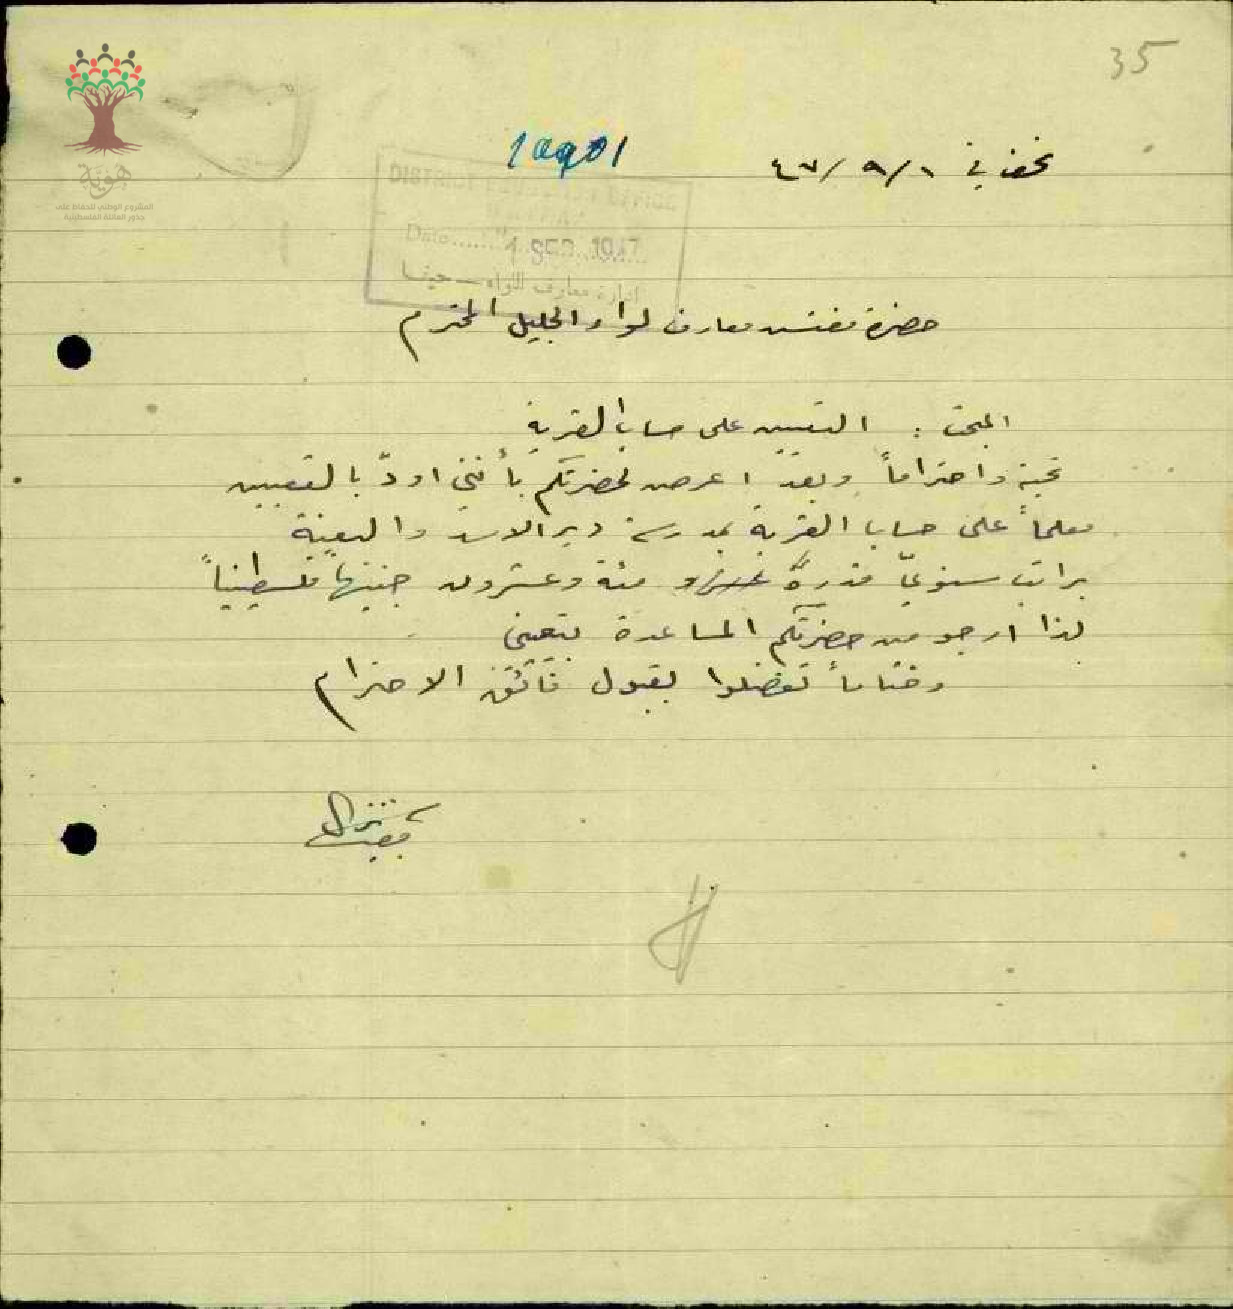 35
هوية
المشروع الوطني للحفاظ على
جذور العائلة الفلسطينية
في ١/٩/٤٧
DISTRICT EDUCATION OFFICE
Date 1 SEP 1947
ادارة معارف اللواء - حيفا
حضرة مفتش معارف لواء الجليل المحترم
المبحث : التعيين على حساب القرية
تحية واحتراماً وبعد اعرض لحضرتكم بأنني اودّ بالتعيين
معلماً على حساب القرية بمدرسة دير الاسد والبعنة
براتب سنويّ قدره مئة وعشرون جنيهاً فلسطينياً
لذا ارجو من حضرتكم المساعدة بتعييني
وختاماً تفضلوا بقبول فائق الاحترام